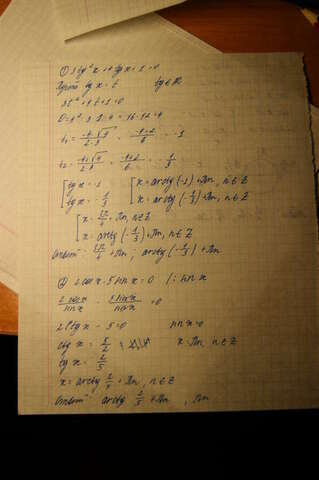 ① 3tg²x + 4tgx + 1 = 0
Пусть tgx = t t ∈ R
3t² + 4t + 1 = 0
D = 4² - 3·1·4 = 16 - 12 = 4
t₁ = (-4-√4)/(2·3) = (-4-2)/6 = -1
t₂ = (-4+√4)/(2·3) = (-4+2)/6 = -1/3
[ tgx = -1 [ x = arctg(-1) + πn, n∈Z
[ tgx = -1/3 [ x = arctg(-1/3) + πn, n∈Z
[ x = 3π/4 + πn, n∈Z
[ x = arctg(-1/3) + πn, n∈Z
Ответ: 3π/4 + πn; arctg(-1/3) + πn
② 2cosx - 5sinx = 0 /: sinx
2cosx/sinx - 5sinx/sinx = 0
2ctgx - 5 = 0 sinx = 0
ctgx = 5/2 x = πn, n∈Z
tgx = 2/5
x = arctg 2/5 + πn, n∈Z
Ответ: arctg 2/5 + πn, πn